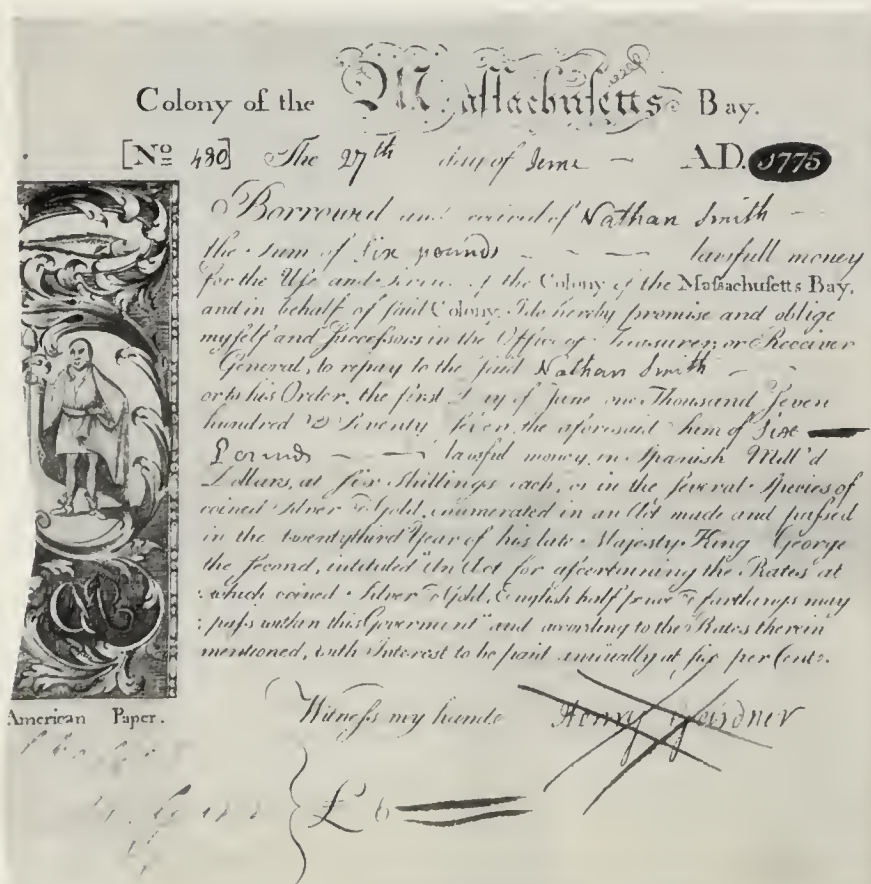 Colony of the Massachusetts Bay.
[No 480] The 27th day of June AD. 1775
Borrowed and received of Nathan Smith
the Sum of Six pounds lawfull money
for the Use and Service of the Colony of the Massachusetts Bay,
and in behalf of said Colony, I do hereby promise and oblige
myself and Successors in the Office of Treasurer, or Receiver
General, to repay to the said Nathan Smith
or to his Order, the first Day of June one Thousand Seven
hundred & Seventy Seven the aforesaid Sum of Six
Pounds lawful money, in Spanish Mill'd
Dollars, at six Shillings each, or in the several Species of
coined Silver & Gold, enumerated in an Act made and passed
in the twenty third Year of his late Majesty King George
the second, intituled "An Act for ascertaining the Rates at
which coined Silver & Gold, English half pence & farthings may
pass within this Goverment" and according to the Rates therein
mentioned, with Interest to be paid annually at six per Cent.
American Paper.
Witness my hand Henry Gardner
£6